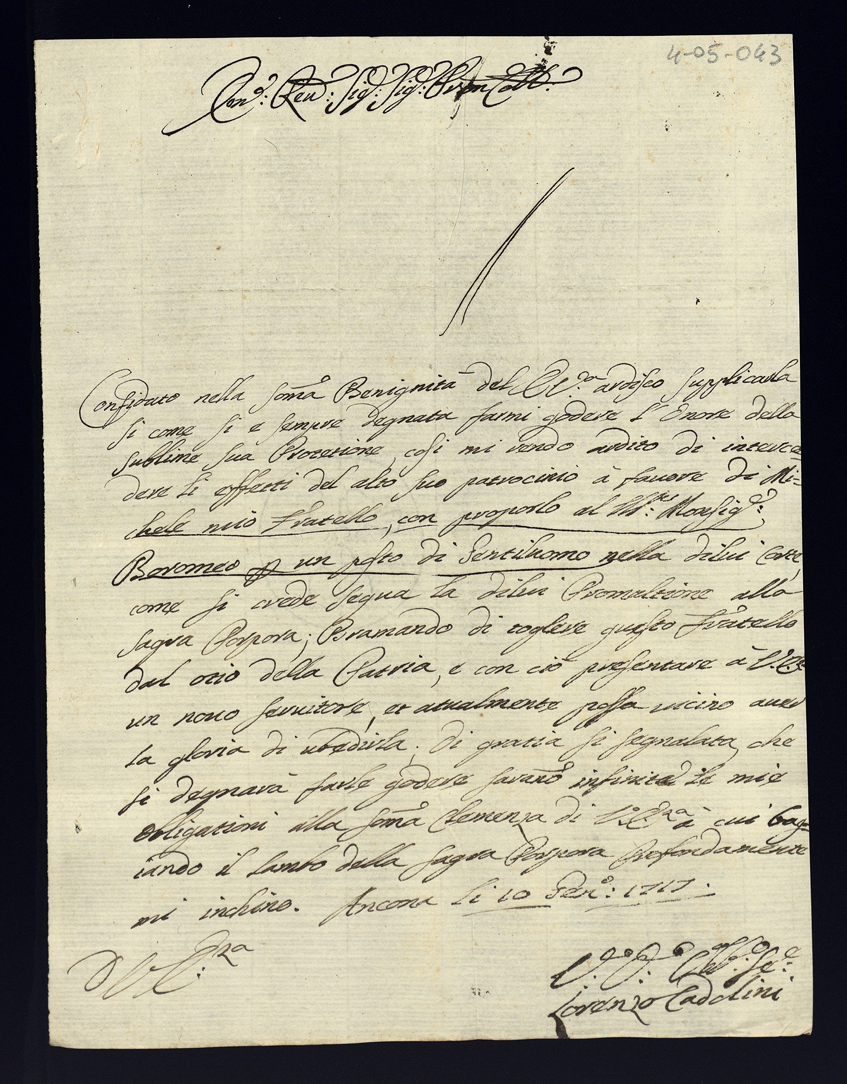 4-05-043
Em.º Reu.º Sig.r Sig.r Pron Coll.º
Confidato nella som.a Benignità del E.V.a ardisco supplicarla
si come si e sempre degnata farmi godere l'Onore della
sublime sua Protetione, così mi rendo ardito di interce=
dere li effetti del alto suo patrocinio à fauore di Mi=
chele mio Fratello, con proporlo al Ill.mo Monsig.r
Boromeo p un posto di Gentiluomo nella dilui Corte,
come si crede segua la dilui Promaltione alla
sagra Porpora; Bramando di togliere questo Fratello
dal otio della Patria, e con ciò presentare à V.E.
un nouo seruitore, et atualmente possa uicino auer
la gloria di ubedirla. Di gratia si segnalata, che
si degnarà farle godere saran.o infinite le mie
obligationi alla som.a Clemenza di V.Em.za à cui bag=
iando il lembo della sagra Porpora Profondamente
mi inchino. Ancona li 10 Gen.º: 1717.
D V. E.za
V.º D.º Ser.e
Lorenzo Cadolini